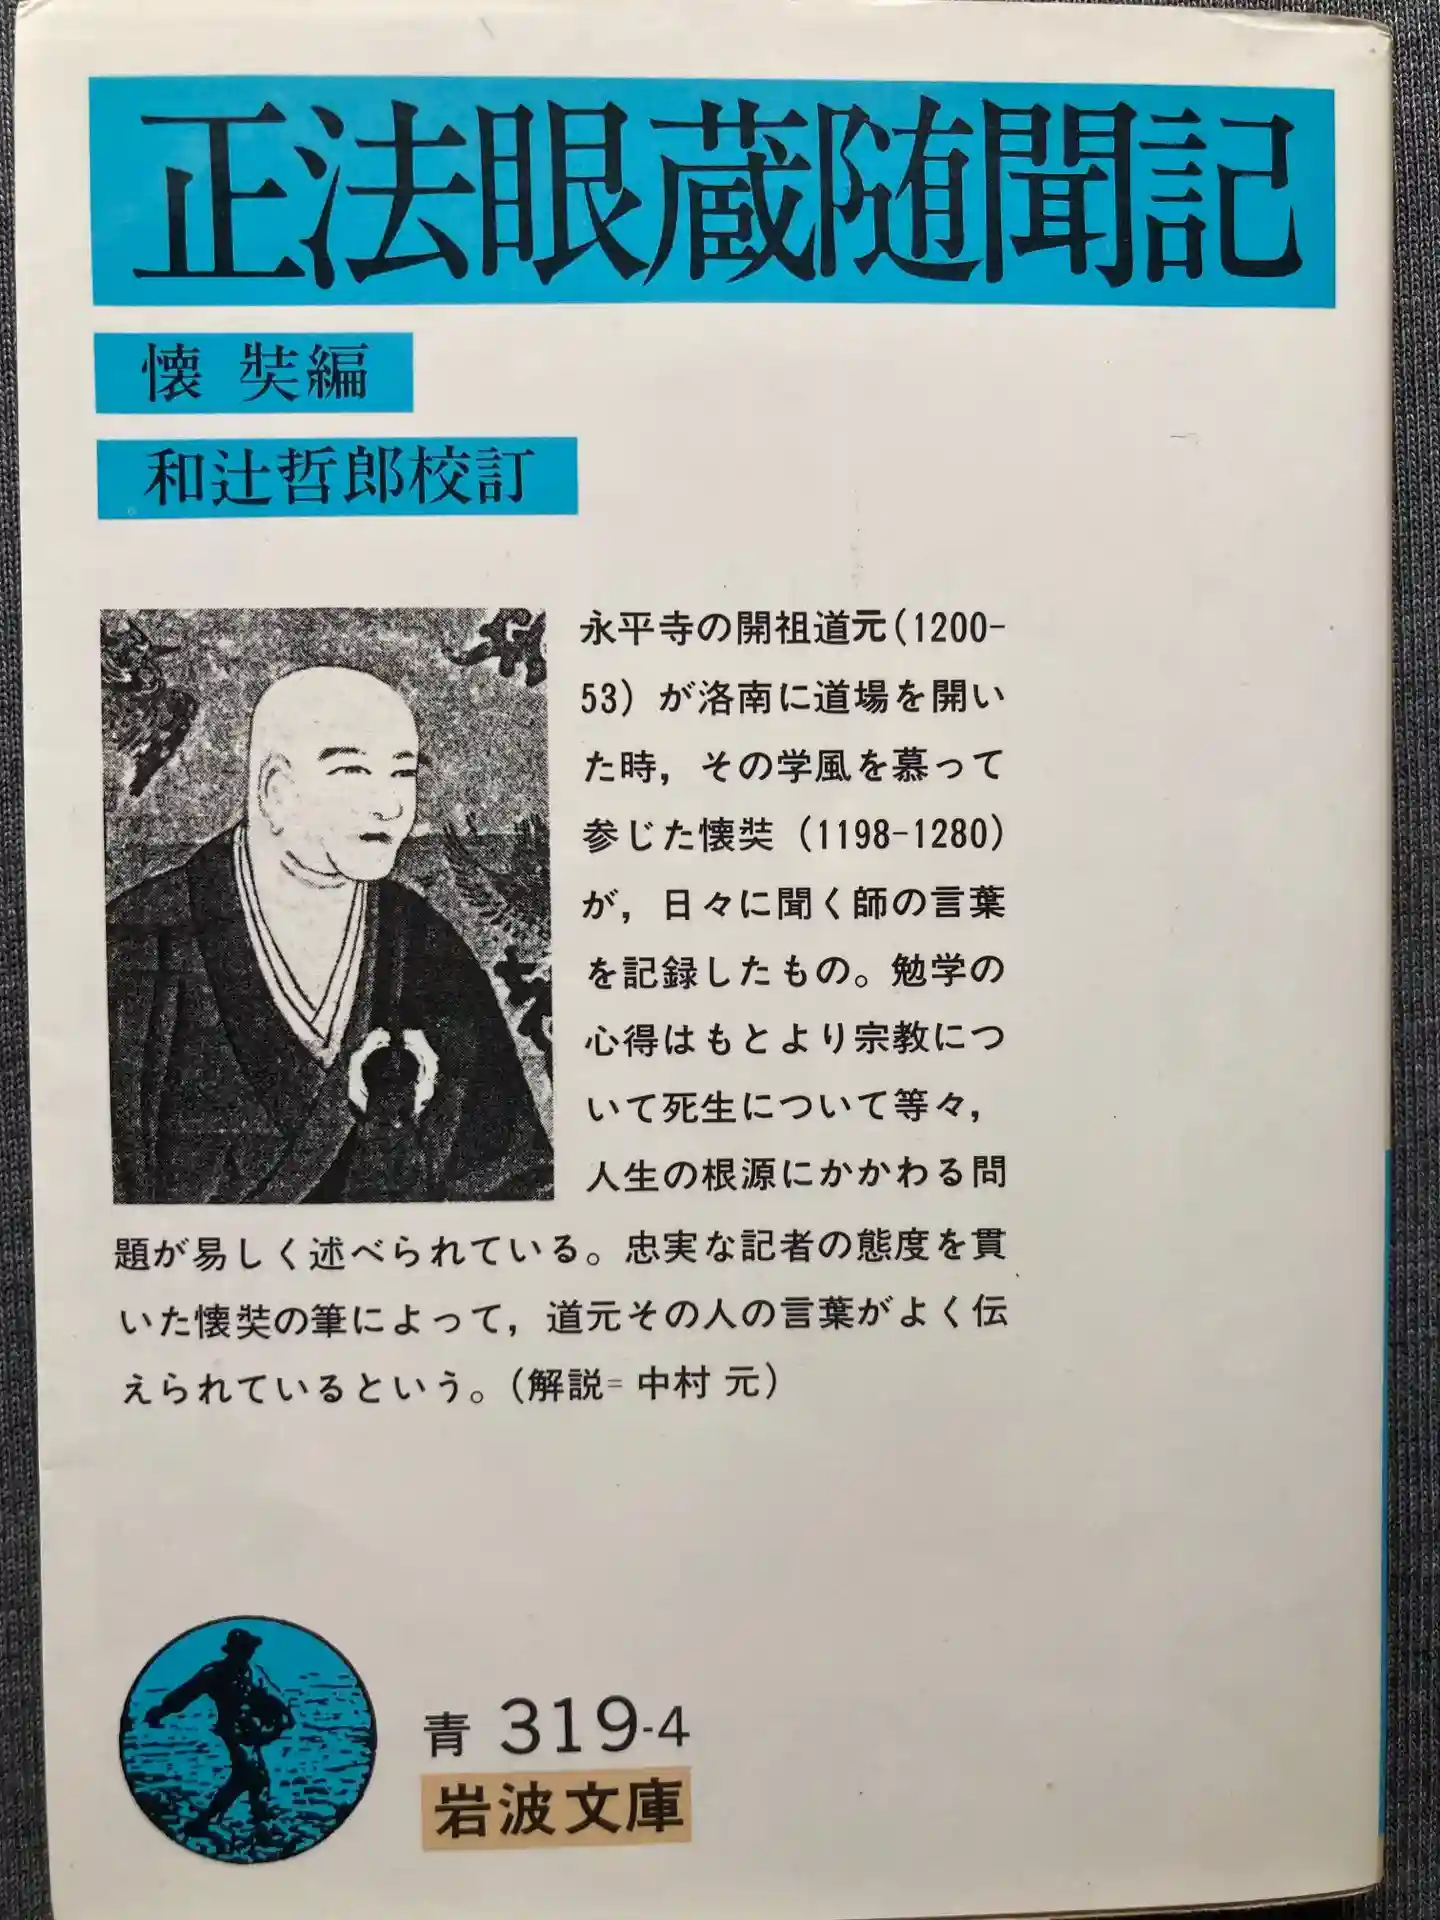 正法眼蔵随聞記
懐 奘編
和辻哲郎校訂
永平寺の開祖道元(1200-
53) が洛南に道場を開い
た時，その学風を慕って
参じた懐奘 (1198-1280)
が，日々に聞く師の言葉
を記録したもの。勉学の
心得はもとより宗教につ
いて死生について等々，
人生の根源にかかわる問
題が易しく述べられている。忠実な記者の態度を貫
いた懐奘の筆によって，道元その人の言葉がよく伝
えられているという。(解説= 中村 元)
青 319-4
岩波文庫